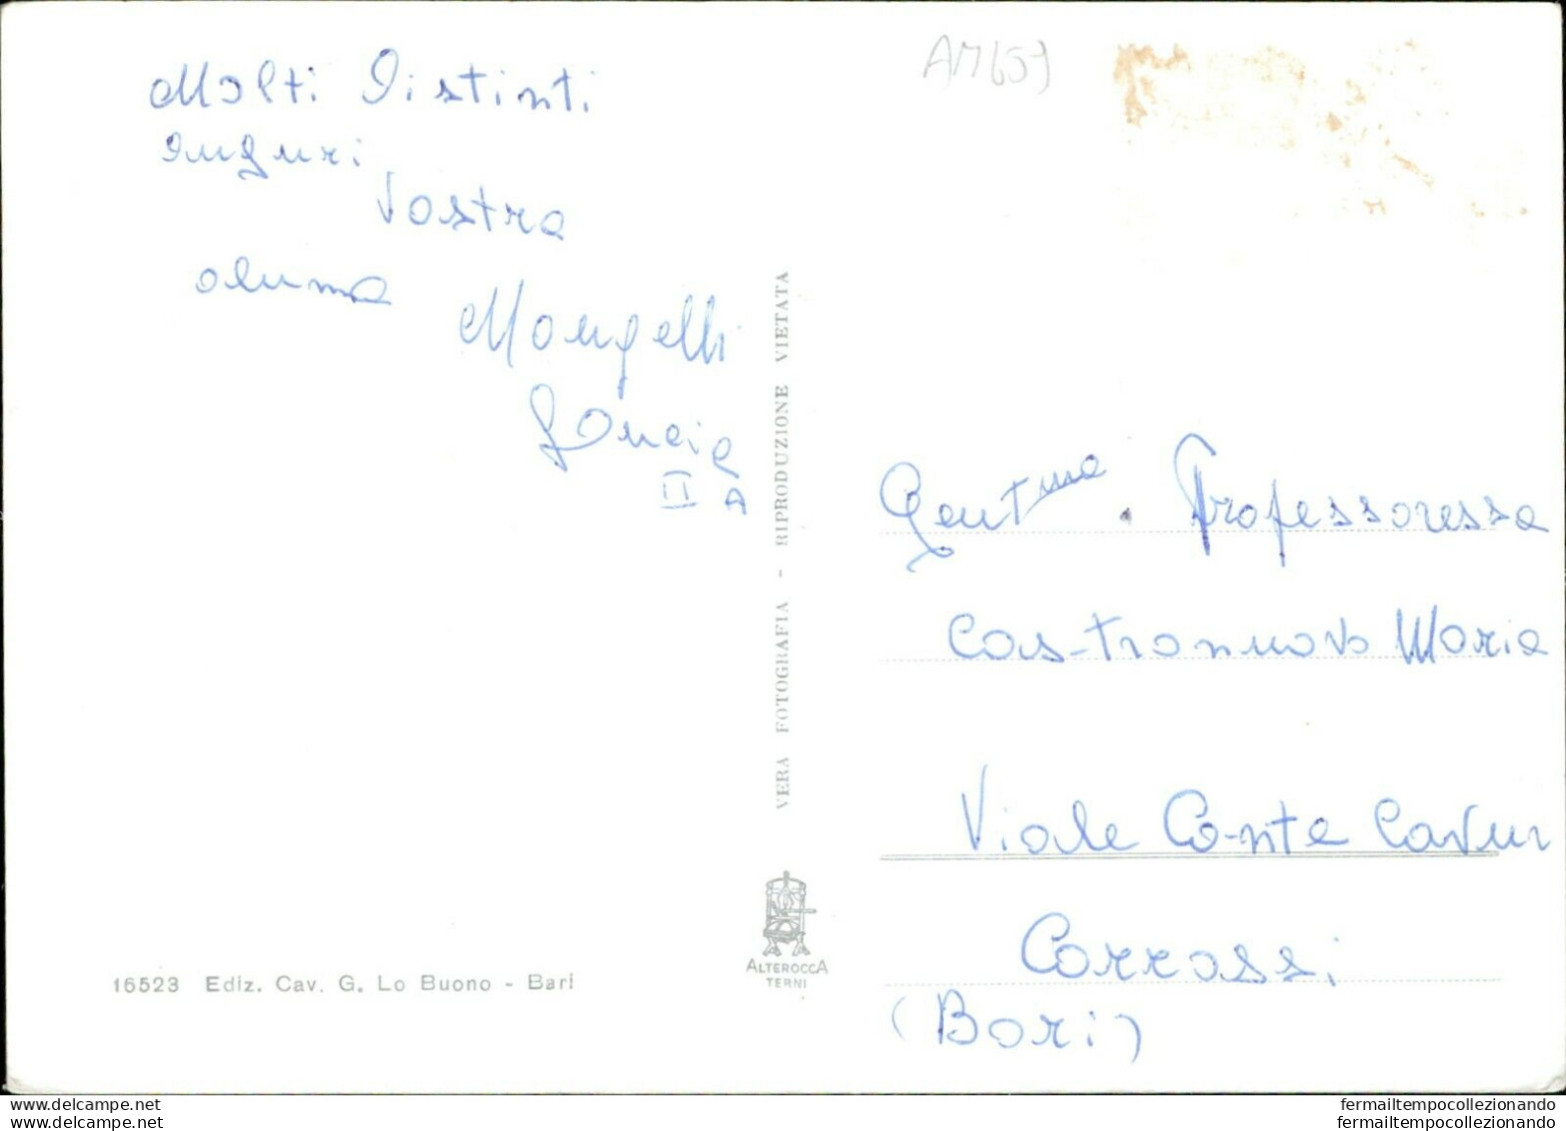 AM659
Molti Distinti
auguri
Vostra
alunna
Mongelli
Lucia
II A
VERA FOTOGRAFIA - RIPRODUZIONE VIETATA
Gent.ma Professoressa
Castronuovo Maria
Viale Conte Cavur
Corrassi
(Bari)
16523 Ediz. Cav. G. Lo Buono - Bari
ALTEROCCA
TERNI
fermailtempocollezionando
fermailtempocollezionando
fermailtempocollezionando
fermailtempocollezionando